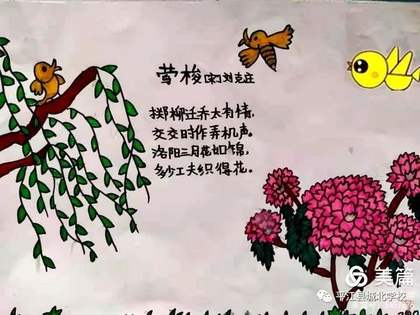 莺梭 [宋]刘克庄
掷柳迁乔太有情,
交交时作弄机声。
洛阳三月花如锦,
多少工夫织得花。
美篇
平江县城北学校